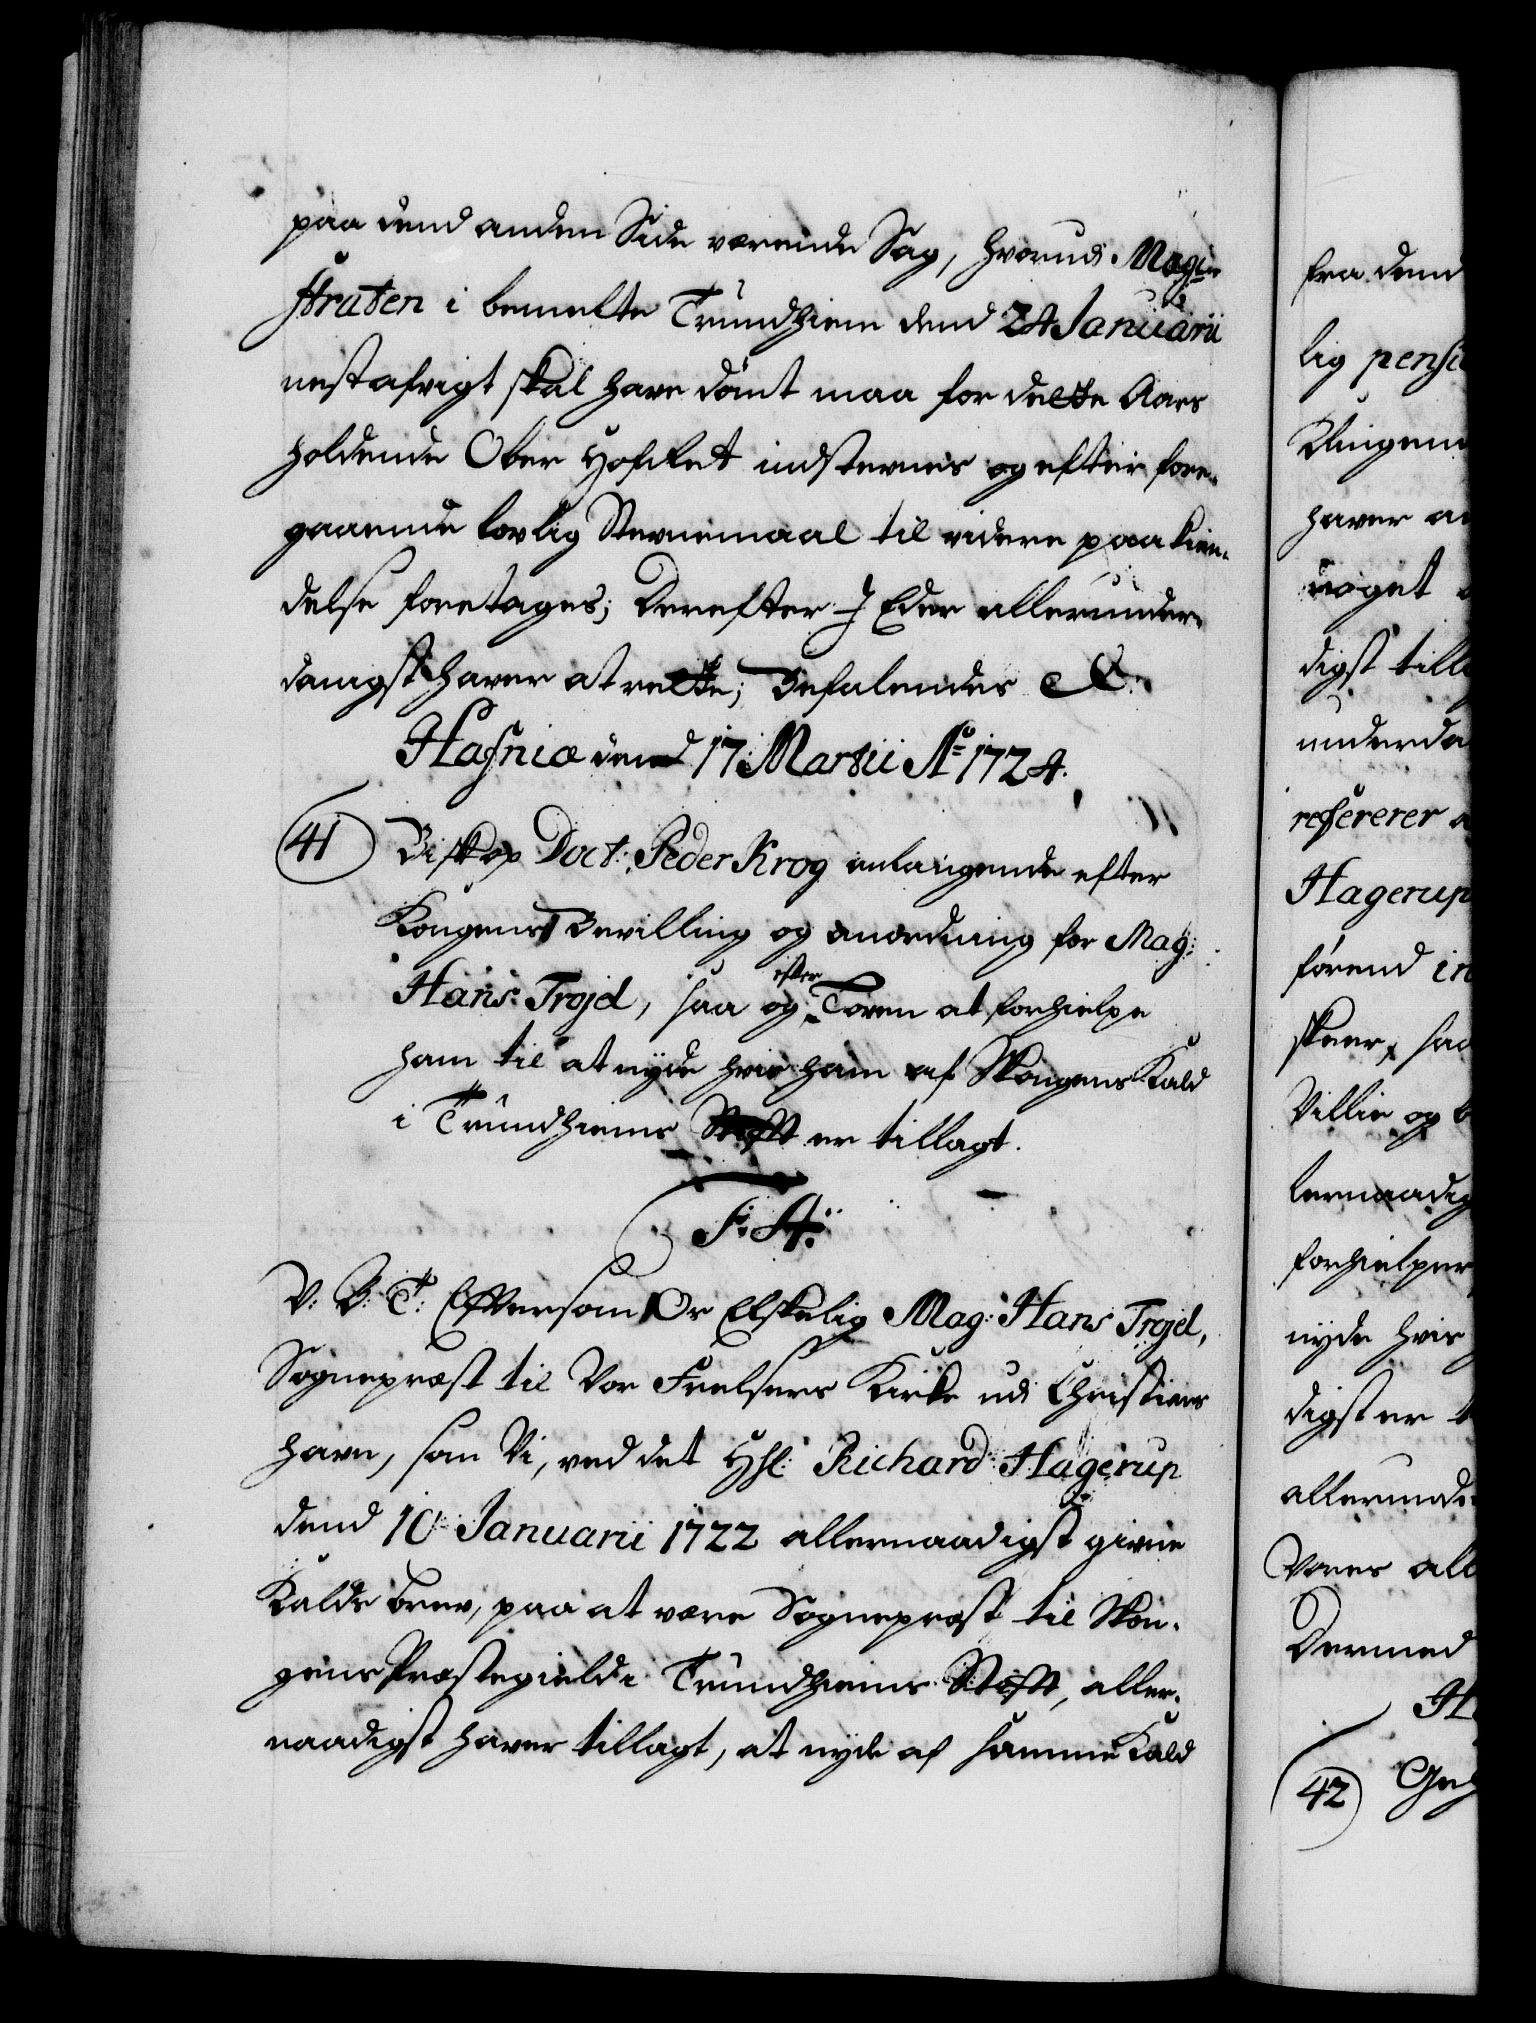 paa dend anden Side værende Sag, hvorudi Magi-
straten i bemelte Trundhiem dend 24 Januarii
nestafvigt skal have dömt maa for dette Aars
holdende Ober Hofret indstevnes og efter fore-
gaaende lovlig Stevnemaal til videre paakien-
delse foretages; Derefter I Eder allerunder-
danigst haver at rette; Befalendes &c.
Hafniæ dend 17 Martii Ao 1724.
41 Biskop Doct: Peder Krog anlangende efter
Kongens Bevilling og anordning for Mag:
Hans Trojel, saa og efter Loven at forhielpe
ham til at nyde hvis ham af Skongens Kald
i Trundhiems Stift er tillagt.
F. 4.
V: G: T: Eftersom Os Elskelig Mag: Hans Trojel,
Sognepræst til Vor Frelsers Kirke udi Christians
havn, som Vi, ved det Hr: Richard Hagerup
dend 10 Januarii 1722 allernaadigst givne
Kalds brev, paa at være Sognepræst til Skon-
gens Præstegield i Trundhiems Stift, aller-
naadigst haver tillagt, at nyde af samme Kald
fra dend
lig pensi
haver a
noget
digst till
underda
refererer
Hagerup
förend in
skeer, saa
Villie og b
lernaadig
forhielper
nyde hvis
digst er t
allerunde
Vores all
Dermed
H
42